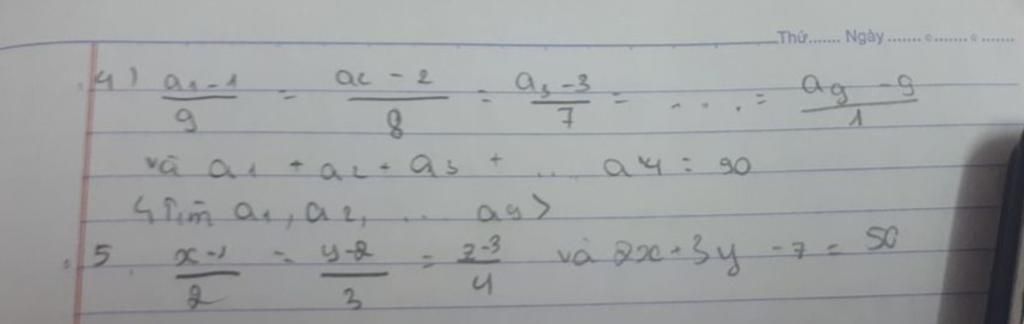 Thứ....... Ngày ....... o ....... o .......
4) \frac{a_1 - 1}{9} = \frac{a_2 - 2}{8} = \frac{a_3 - 3}{7} = .... = \frac{a_9 - 9}{1}
và a_1 + a_2 + a_3 + ... a4 = 90
<Tìm a_1, a_2, ... a_9>
5. \frac{x - 1}{2} = \frac{y - 2}{3} = \frac{z - 3}{4} và 2x + 3y - 7 = 50